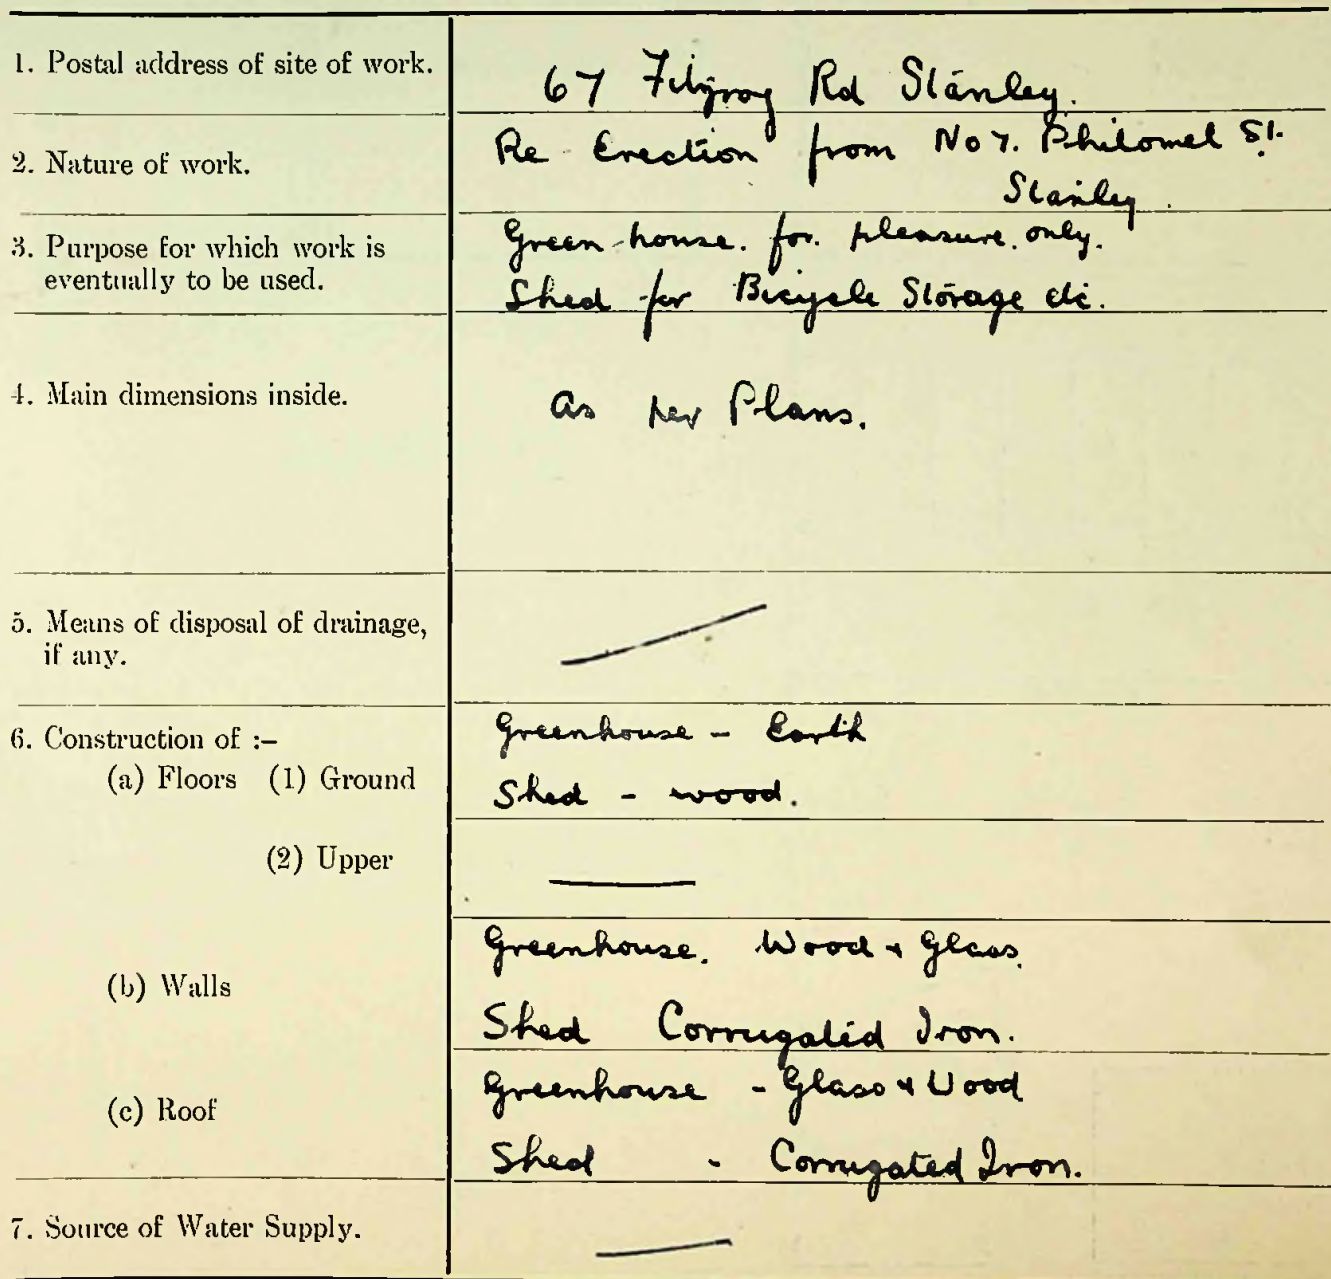 1. Postal address of site of work.
67 Fitzroy Rd Stanley.
2. Nature of work.
Re-Erection from No 7. Philomel St.
Stanley.
3. Purpose for which work is
eventually to be used.
Green-house. for. pleasure. only.
Shed for Bicycle Storage etc.
4. Main dimensions inside.
As per Plans.
5. Means of disposal of drainage,
if any.
6. Construction of :–
(a) Floors (1) Ground
Greenhouse - Earth
Shed - wood.
(2) Upper
(b) Walls
Greenhouse. Wood + Glass.
Shed Corrugated Iron.
(c) Roof
Greenhouse - Glass + Wood
Shed - Corrugated Iron.
7. Source of Water Supply.